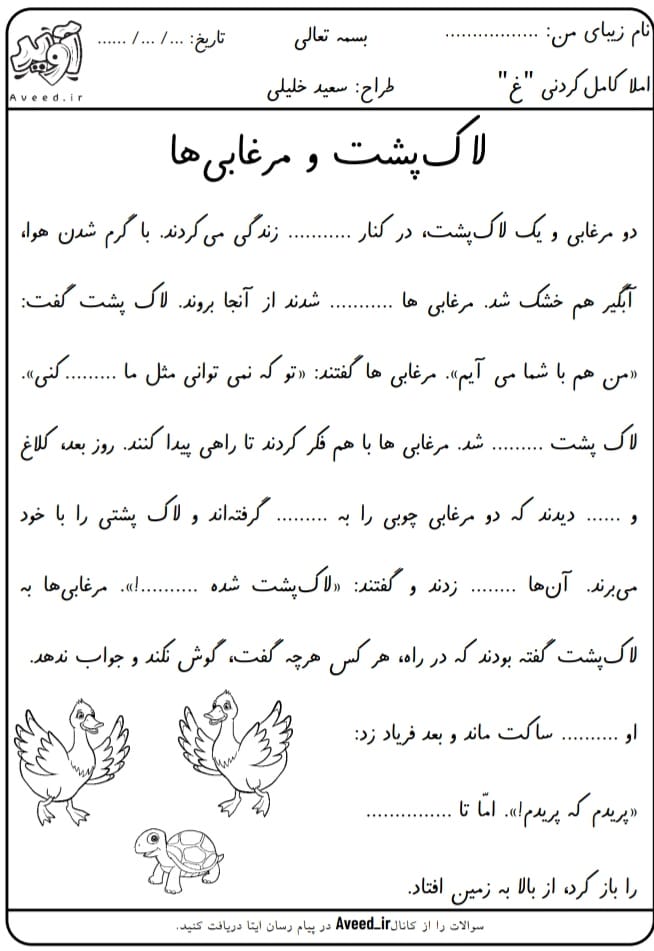 نام زیبای من: ................. بسمه تعالی تاریخ: .../ .../ ......
املا کامل کردنی "غ" طراح: سعید خلیلی
آوید
Aveed.ir
لاک‌پشت و مرغابی‌ها
دو مرغابی و یک لاک‌پشت، در کنار ........... زندگی می‌کردند. با گرم شدن هوا،
آبگیر هم خشک شد. مرغابی ها ........... شدند از آنجا بروند. لاک پشت گفت:
«من هم با شما می آیم». مرغابی ها گفتند: «تو که نمی توانی مثل ما .........کنی».
لاک پشت ......... شد. مرغابی ها با هم فکر کردند تا راهی پیدا کنند. روز بعد، کلاغ
و ...... دیدند که دو مرغابی چوبی را به ......... گرفته‌اند و لاک پشتی را با خود
می‌برند. آن‌ها ........ زدند و گفتند: «لاک‌پشت شده ..........!». مرغابی‌ها به
لاک‌پشت گفته بودند که در راه، هر کس هرچه گفت، گوش نکند و جواب ندهد.
او .......... ساکت ماند و بعد فریاد زد:
«پریدم که پریدم!». امّا تا ...............
را باز کرد، از بالا به زمین افتاد.
سوالات را از کانال Aveed_ir در پیام رسان ایتا دریافت کنید.